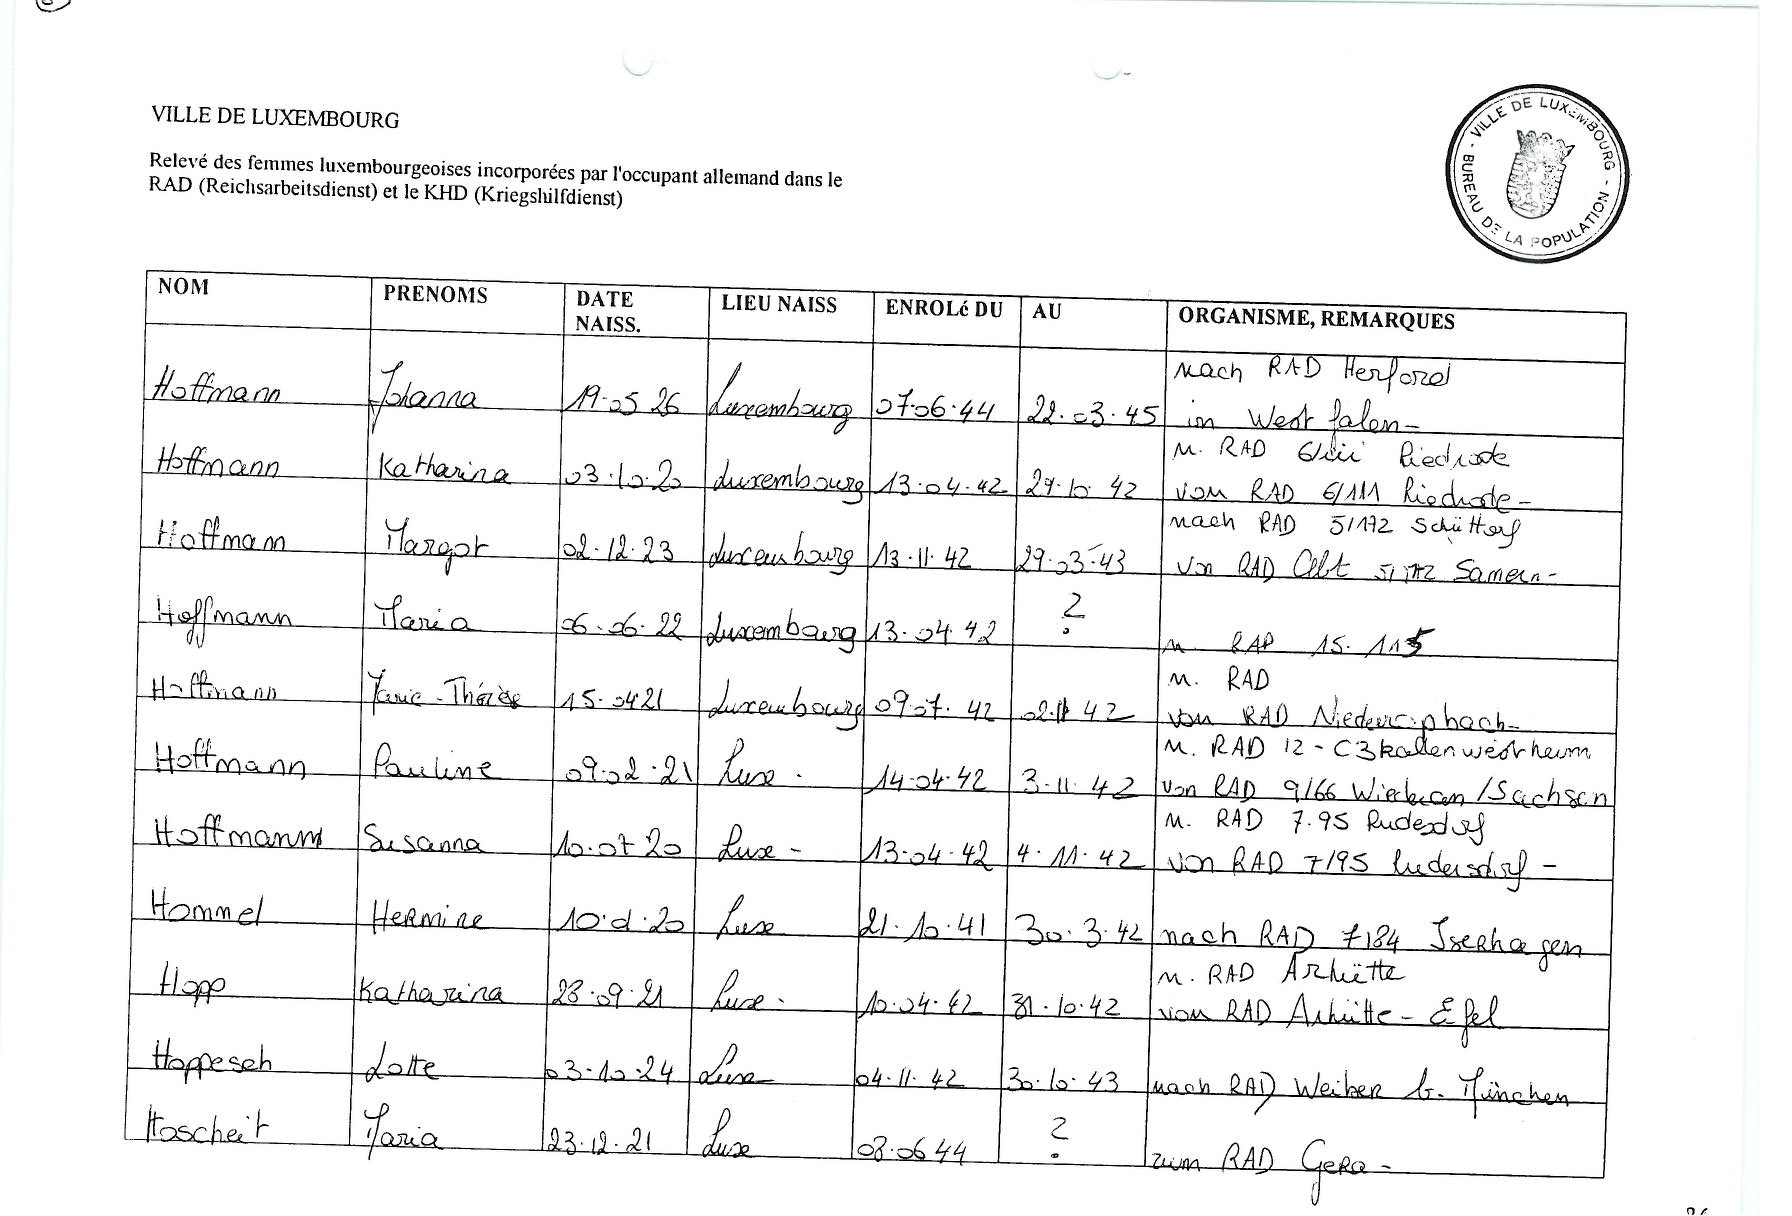 VILLE DE LUXEMBOURG
Relevé des femmes luxembourgeoises incorporées par l'occupant allemand dans le
RAD (Reichsarbeitsdienst) et le KHD (Kriegshilfdienst)
- VILLE DE LUXEMBOURG - BUREAU DE LA POPULATION
NOM PRENOMS DATE NAISS. LIEU NAISS ENROLé DU AU ORGANISME, REMARQUES
nach RAD Herford
Hoffmann Johanna 19.05 26 Luxembourg 07.06.44 22.03.45 in Westfalen-
n. RAD 6/iii Riedrode
Hoffmann Katharina 03.10.20 Luxembourg 13.04.42 29.10.42 vom RAD 6/111 Riedrode-
nach RAD 5/172 Schüttorf
Hoffmann Margot 02.12.23 Luxembourg 13.11.42 29.03.43 von RAD Abt 5/172 Samern-
Hoffmann Maria 06.06.22 Luxembourg 13.04.42 ? n. RAD 15.115
n. RAD
Hoffmann Marie-Thérèse 15.0421 Luxembourg 0907.42 02.11 42 von RAD
n. RAD 12-C3 kaltenwestheim
Hoffmann Pauline 09.02.21 Luxe. 14.04.42 3.11.42 von RAD 9/66 /Sachsen
n. RAD 7.95 Rudesdorf
Hoffmann Susanna 10.07 20 Luxe- 13.04.42 4.11.42 von RAD 7/95 Rudersdorf-
Hommel Hermine 10.d.20 Luxe 21.10.41 30.3.42 nach RAD 7184 Iserhagen
n. RAD Arhütte
Hopp Katharina 28.09.21 Luxe. 10.04.42 31.10.42 von RAD Arhütte-Eifel
Hoppesch Lotte 03.10.24 Luxe 04.11.42 30.10.43 nach RAD b. München
Hoscheit Maria 23.12.21 Luxe 08.0644 ? zum RAD Gera-